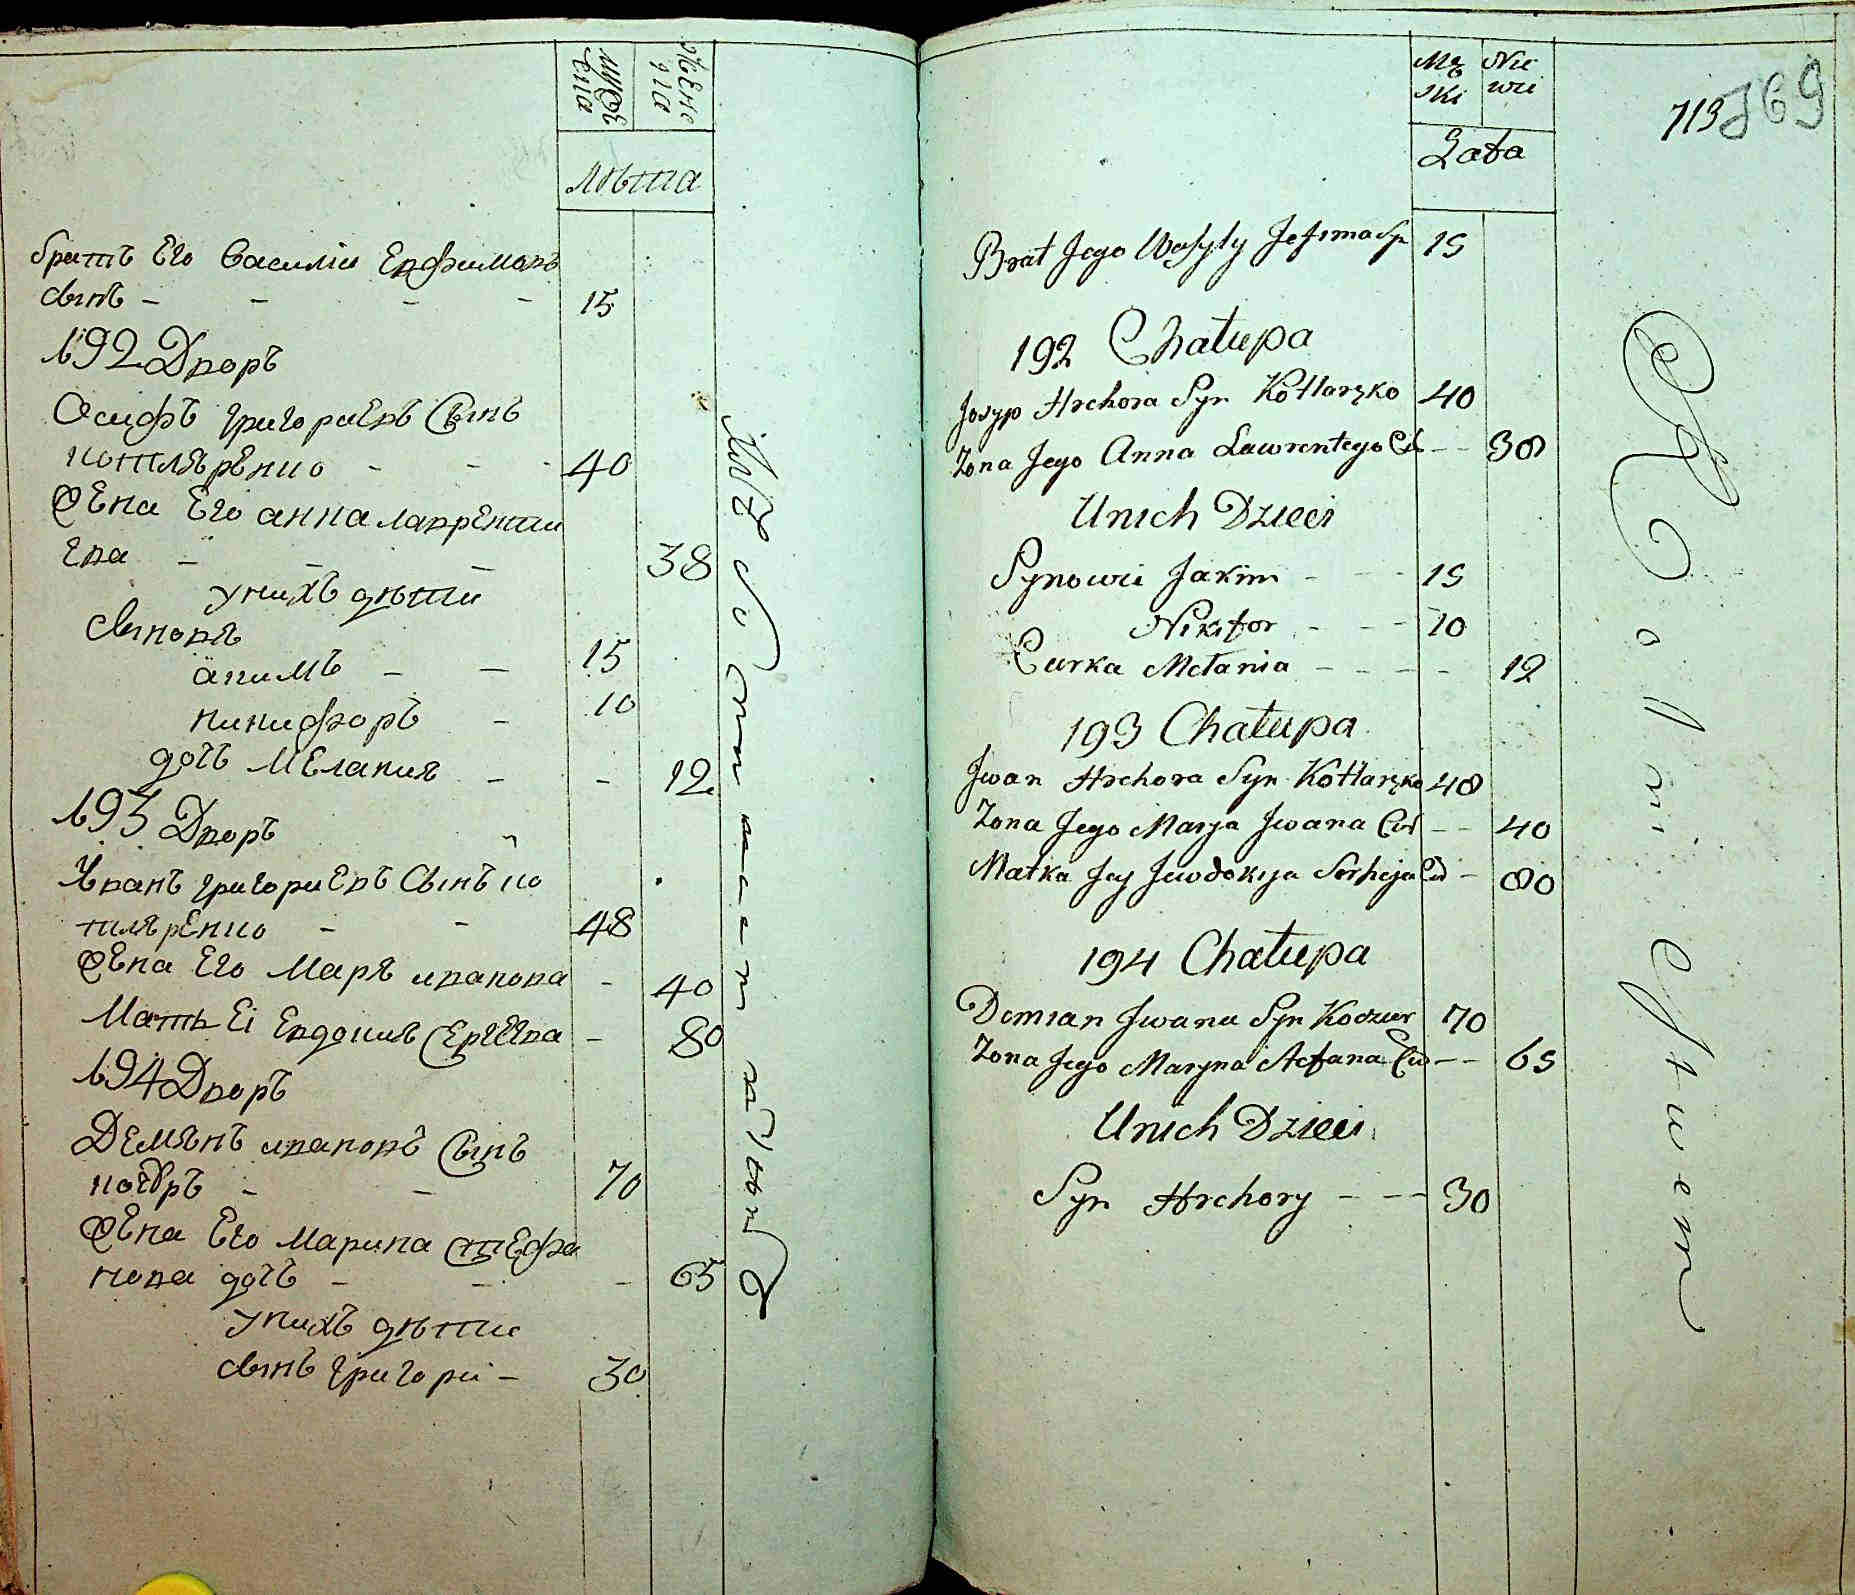 мужеска
женска
лѣта
братъ Его василіи Евфимовъ
сынъ - - - - 15
192 Дворъ
Осифъ григориевъ Сынъ
котляренко - - - 40
жена Его анна лаврентии
ева - - - 38
у нихъ дѣти
сыновя
якимъ - - 15
никифоръ - 10
дочь Мелания - - 12
193 Дворъ
Иванъ григориевъ Сынъ ко
тляренко - - 48
жена Его Маря иванова - 40
Мать Еі Евдокия Сергеева - 80
194 Дворъ
Демянъ ивановъ Сынъ
кочуръ - - 70
жена Его Марина стефа
нова дочь - - - 65
у нихъ дѣти
сынъ григори - 30
Mę
ski
Nie
wii
Lata
713
769
Brat Jego Wasyly Jefima Sy 15
192 Chałupa
Josyp Hrehora Syn Kotlarzko 40
Zona Jego Anna Lawrentego Cór - - 38
Unich Dzieci
Synowii Jakim - - - 15
Nikifor - - - 10
Curka Melania - - - - - 12
193 Chałupa
Jwan Hrehora Syn Kotlarzko 48
Zona Jego Marja Jwana Cur - - 40
Matka Jej Jewdokija Serheja Cur - 80
194 Chałupa
Demian Jwana Syn Koczur 70
Zona Jego Maryna Stefana Cur - - 65
Unich Dzieci
Syn Hrehory - - - 30